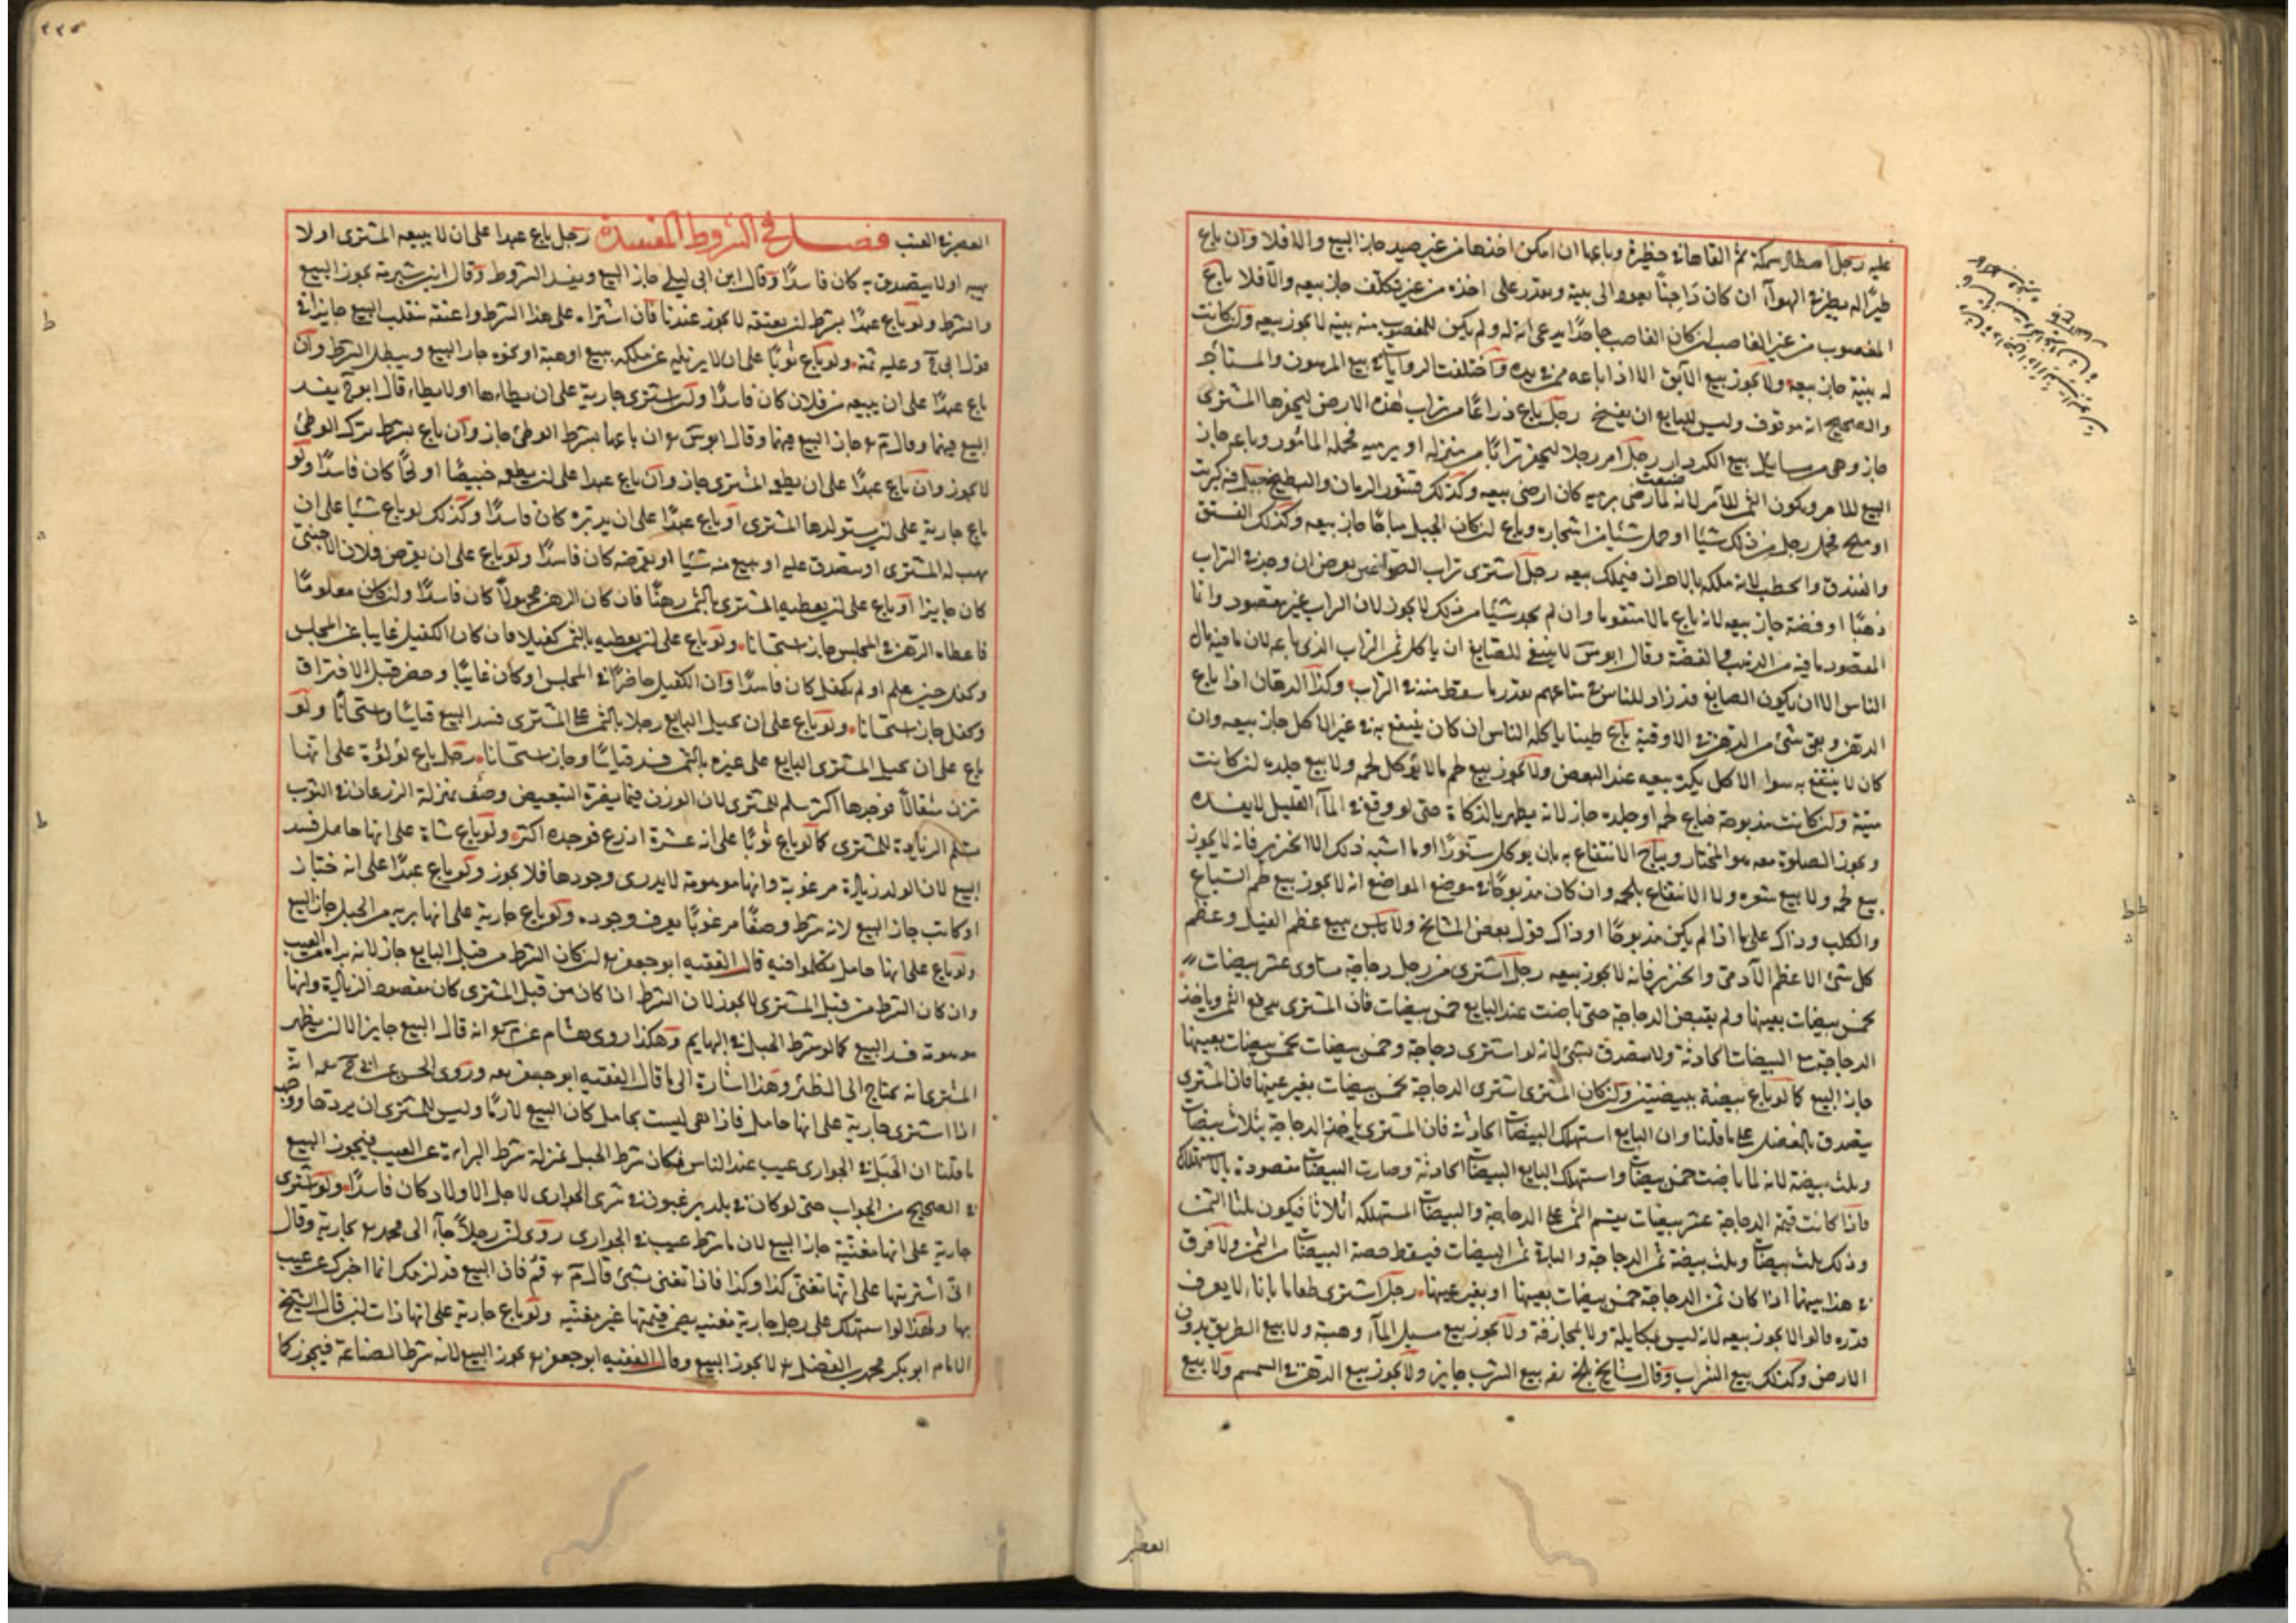 عليه رجل اصطاد سمكة ثم القاها في حظيرة وباعها ان امكن اخذها من غير صيد جاز البيع والا فلا وان باع
طيرا له يطير في الهواء ان كان داجنا يعود الى بيته ويقدر على اخذه من غير تكلف جاز بيعه والا فلا باع
المغصوب من غير الغاصب ان كان الغاصب جاحدا يدعي انه له ولم يكن للمغصوب منه بينة لا يجوز بيعه وان كانت
له بينة جاز بيعه ولا يجوز بيع الآبق الا اذا باعه ممن في يده واختلفت الروايات في بيع المرهون والمستأجر
والصحيح انه موقوف وليس للبايع ان يفسخ رجل باع ذراعا من تراب هذه الارض ليحفرها المشتري
جاز وهي من مسايل بيع الكردار رجل امر رجلا ليحفر ترابا من منزله او يرميه فحمله المأمور وباعه جاز
البيع للامر ويكون الثمن للآمر لانه لما رضي برميه كان ارضى ببيعه وكذلك قشور الرمان والبطيخ جبل فيه كبريت
او ملح فحمل رجل من ذلك شيئا او حمل شيئا من اشجاره وباع ان كان الجبل مباحا جاز بيعه وكذلك الفستق
والفندق والحطب لانه ملكه بالاحراز فيملك بيعه رجل اشترى تراب الصواغين بعرض ان وجد في التراب
ذهبا او فضة جاز بيعه لانه باع مالا متقوما وان لم يجد شيئا من ذلك لا يجوز لان التراب غير مقصود وانما
المقصود ما فيه من الذهب والفضة وقال ابو س لا ينبغي للصايغ ان ياكل ثمن التراب الذي باعه لان ما فيه مال
الناس الا ان يكون الصايغ قد زاد للناس في متاعهم بقدر ما سقط منه في التراب وكذا الدهان اذا باع
الدهن وبقي شيء من الدهن في الاوقية باع طينا ياكله الناس ان كان ينتفع به في غير الاكل جاز بيعه وان
كان لا ينتفع به سوا الاكل يكره بيعه عند البعض ولا يجوز بيع لحم ما لا يؤكل لحمه ولا بيع جلده ان كانت
ميتة وان كانت مذبوحة فباع لحمه او جلده جاز لانه يطهر بالذكاة حتى لو وقع في الماء القليل لا يفسده
ويجوز الصلوة معه هو المختار ويباح الانتفاع به بان يوكل سنورا او ما اشبه ذلك الا الخنزير فانه لا يجوز
بيع لحمه ولا بيع شعره ولا الانتفاع بلحمه وان كان مذبوحا وفي موضع المواضع انه لا يجوز بيع لحم السباع
والكلب وذاك على ما اذا لم يكن مذبوحا او ذاك قول بعض المشايخ ولا باس ببيع عظم الفيل وعظم
كل شيء الا عظم الآدمي والخنزير فانه لا يجوز بيعه رجل اشترى من رجل دجاجة تساوي عشر بيضات
بخمس بيضات بعينها ولم يقبض الدجاجة حتى باضت عند البايع خمس بيضات فان المشتري يدفع الثمن وياخذ
الدجاجة مع البيضات الحادثة ولا يتصدق بشيء لانه لو اشترى دجاجة وخمس بيضات بخمس بيضات بعينها
جاز البيع كما لو باع بيضة ببيضتين وان كان المشتري اشترى الدجاجة بخمس بيضات بغير عينها فان المشتري
يتصدق بالفضل على ما قلنا وان البايع استهلك البيضات الحادثة فان المشتري ياخذ الدجاجة بثلاث بيضات
وثلث بيضة لانه لما باضت خمس بيضات واستهلك البايع البيضات الحادثة وصارت البيضات مقصودة بالاستهلاك
فاذا كانت قيمة الدجاجة عشر بيضات يقسم الثمن على الدجاجة والبيضات المستهلكة اثلاثا فيكون ثلثا الثمن
وذلك ثلث بيضات وثلث بيضة ثمن الدجاجة والباقي ثمن البيضات فيسقط حصة البيضات من الثمن ولا فرق
في هذا بينهما اذا كان ثمن الدجاجة خمس بيضات بعينها او بغير عينها رجل اشترى طعاما باناء لا يعرف
قدره قالوا لا يجوز بيعه لانه ليس بمكايلة ولا مجازفة ولا يجوز بيع مسيل الماء وهبته ولا بيع الطريق بدون
الارض وكذلك بيع الشراب وقال مشايخ بلخ رحمه بيع الشرب جايز ولا يجوز بيع الدهن في السمسم ولا بيع
العصير
٢٢٥
العصير في العنب فصل في الشروط المفسدة رجل باع عبدا على ان لا يبيعه المشتري او لا
يهبه او لا يتصدق به كان فاسدا وقال ابن ابي ليلى جاز البيع ويفسد الشروط وقال ابن شبرمة يجوز البيع
والشرط ولو باع عبدا بشرط ان يعتقه لا يجوز عندنا فان اشتراه على هذا الشرط واعتقه ينقلب البيع جايزا في
قول ابي ح وعليه ثمنه ولو باع ثوبا على ان لا يزيله عن ملكه ببيع او هبة او نحوه جاز البيع ويبطل الشرط وان
باع عبدا على ان يبيعه من فلان كان فاسدا ولو اشترى جارية على ان يطاءها او لا يطاء قال ابو ح يفسد
البيع فيهما وقال م جاز البيع فيهما وقال ابو س ان باعها بشرط الوطئ جاز وان باع بشرط ترك الوطئ
لا يجوز وان باع عبدا على ان يطعم المشتري جاز وان باع عبدا على ان يطعمه خبيصا او لحما كان فاسدا ولو
باع جارية على ان يستولدها المشتري او باع عبدا على ان يدبره كان فاسدا وكذلك لو باع شيئا على ان
يهب له المشتري او يتصدق عليه او يبيع منه شيئا او يقرضه كان فاسدا ولو باع على ان يقرض فلان الاجنبي
كان جايزا او باع على ان يعطيه المشتري بالثمن رهنا فان كان الرهن مجهولا كان فاسدا وان كان معلوما
فاعطاه الرهن في المجلس جاز استحسانا ولو باع على ان يعطيه بالثمن كفيلا فان كان الكفيل غايبا عن المجلس
وكفل حين علم او لم يكفل كان فاسدا وان الكفيل حاضرا في المجلس او كان غايبا وحضر قبل الافتراق
وكفل جاز استحسانا ولو باع على ان يحيل البايع رجلا بالثمن على المشتري فسد البيع قياسا واستحسانا ولو
باع على ان يحيل المشتري البايع على غيره بالثمن فسد قياسا وجاز استحسانا رجل باع لؤلؤة على انها
تزن مثقالا فوجدها اكثر سلم للمشتري لان الوزن فيما يضره التبعيض وصف بمنزلة الذرعان في الثوب
يسلم الزيادة للمشتري كما لو باع ثوبا على انه عشرة اذرع فوجده اكثر ولو باع شاة على انها حامل فسد
البيع لان الولد زيادة مرغوبة وانها موهومة لا يدرى وجودها فلا يجوز ولو باع عبدا على انه خباز
او كاتب جاز البيع لانه شرط وصفا مرغوبا يعرف وجوده ولو باع جارية على انها برية من الحبل جاز البيع
ولو باع على انها حامل تكلموا فيه قال الفقيه ابو جعفر ان كان الشرط من قبل البايع جاز لانه براءة العيب
وان كان الشرط من قبل المشتري لا يجوز لان الشرط اذا كان من قبل المشتري كان مقصوده الزيادة وانها
موهومة فسد البيع كما لو شرط الحبل في البهايم وهكذا روى هشام عن م انه قال البيع جايز الا ان يظهر
المشتري انه يحتاج الى الظئر وهذا اشارة الى ما قال الفقيه ابو جعفر وروى الحسن عن ابي ح انه
اذا اشترى جارية على انها حامل فاذا هي ليست بحامل كان البيع لازما وليس للمشتري ان يردها ووجهه
ما قلنا ان الحبل في الجواري عيب عند الناس فكان شرط الحبل بمنزلة شرط البراءة عن العيب فيجوز البيع
في الصحيح من الجواب حتى لو كان في بلد يرغبون في شرى الجواري لاجل الاولاد كان فاسدا ولو اشترى
جارية على انها مغنية جاز البيع لان ما شرط عيب في الجواري روى ان رجلا جاء الى محمد بجارية وقال
اني اشتريتها على انها تغني كذا وكذا فاذا تغني بشيء قال م قم فان البيع قد لزمك انما اخبرك عن عيب
بها ولهذا لو استهلك على رجل جارية مغنية يضمن قيمتها غير مغنية ولو باع جارية على انها ذات لبن قال الشيخ
الامام ابو بكر محمد بن الفضل لا يجوز البيع وقال الفقيه ابو جعفر يجوز البيع لانه شرط الصناعة فيجوز كما